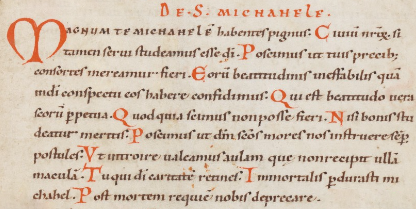 DE. S. MICHAHELE.
MAGNUM TE MICHAHELĒ habentes pignus. Ciuiū nr̄ix. si
tamen serui studeamus esse dī. Poscimus ut tuis precib;
consortes mereamur fieri. Eorū beatitudinis ineffabilis quā
indi conspectu eos habere confidimus. Qui est beatitudo uera
scōrū ꝑpetua. Quod quia scimus non posse fieri. Nisi bonis stu
deatur meritis. Poscimus ut dn̄m scōs mores nos instruere sēp̄
postules. Ut introire ualeamus aulam que non recepit ullā
maculā. Tu qui di caritatē retines. Immortalis ꝑdurasti mi
chahel. Post mortem requiē nobis deprecare.